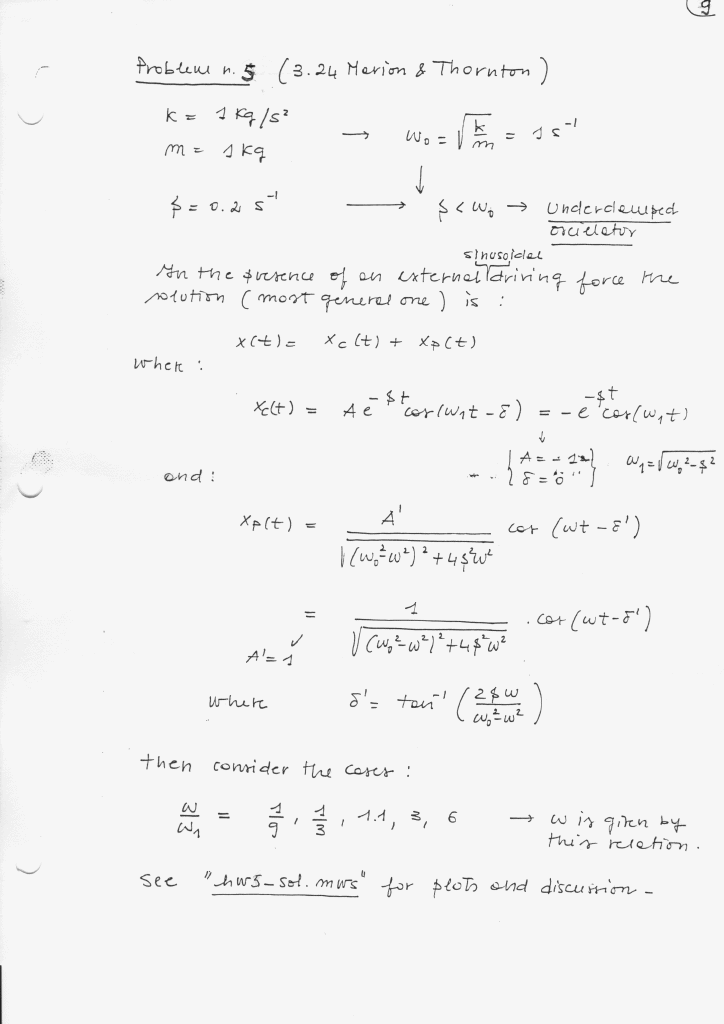 9
Problem n. 5 (3.24 Marion & Thornton)
k = 1 kg/s²
m = 1 kg
→ ω₀ = √(k/m) = 1 s⁻¹
↓
β = 0.2 s⁻¹ → β < ω₀ → Underdamped
oscillator
sinusoidal
In the presence of an external driving force the
solution (most general one) is :
x(t) = xc(t) + xp(t)
where :
xc(t) = A e^(-βt) cos(ω₁t - δ) = - e^(-βt) cos(ω₁t)
↓
{ A = - 1
δ = 0 } ω₁ = √(ω₀² - β²)
and :
xp(t) = A' / √((ω₀² - ω²)² + 4β²ω²) cos (ωt - δ')
= 1 / √((ω₀² - ω²)² + 4β²ω²) · cos (ωt - δ')
A' = 1
where δ' = tan⁻¹ (2βω / (ω₀² - ω²))
then consider the cases :
ω/ω₁ = 1/9, 1/3, 1.1, 3, 6 → ω is given by
this relation.
See "hw5-sol.mws" for plots and discussion -